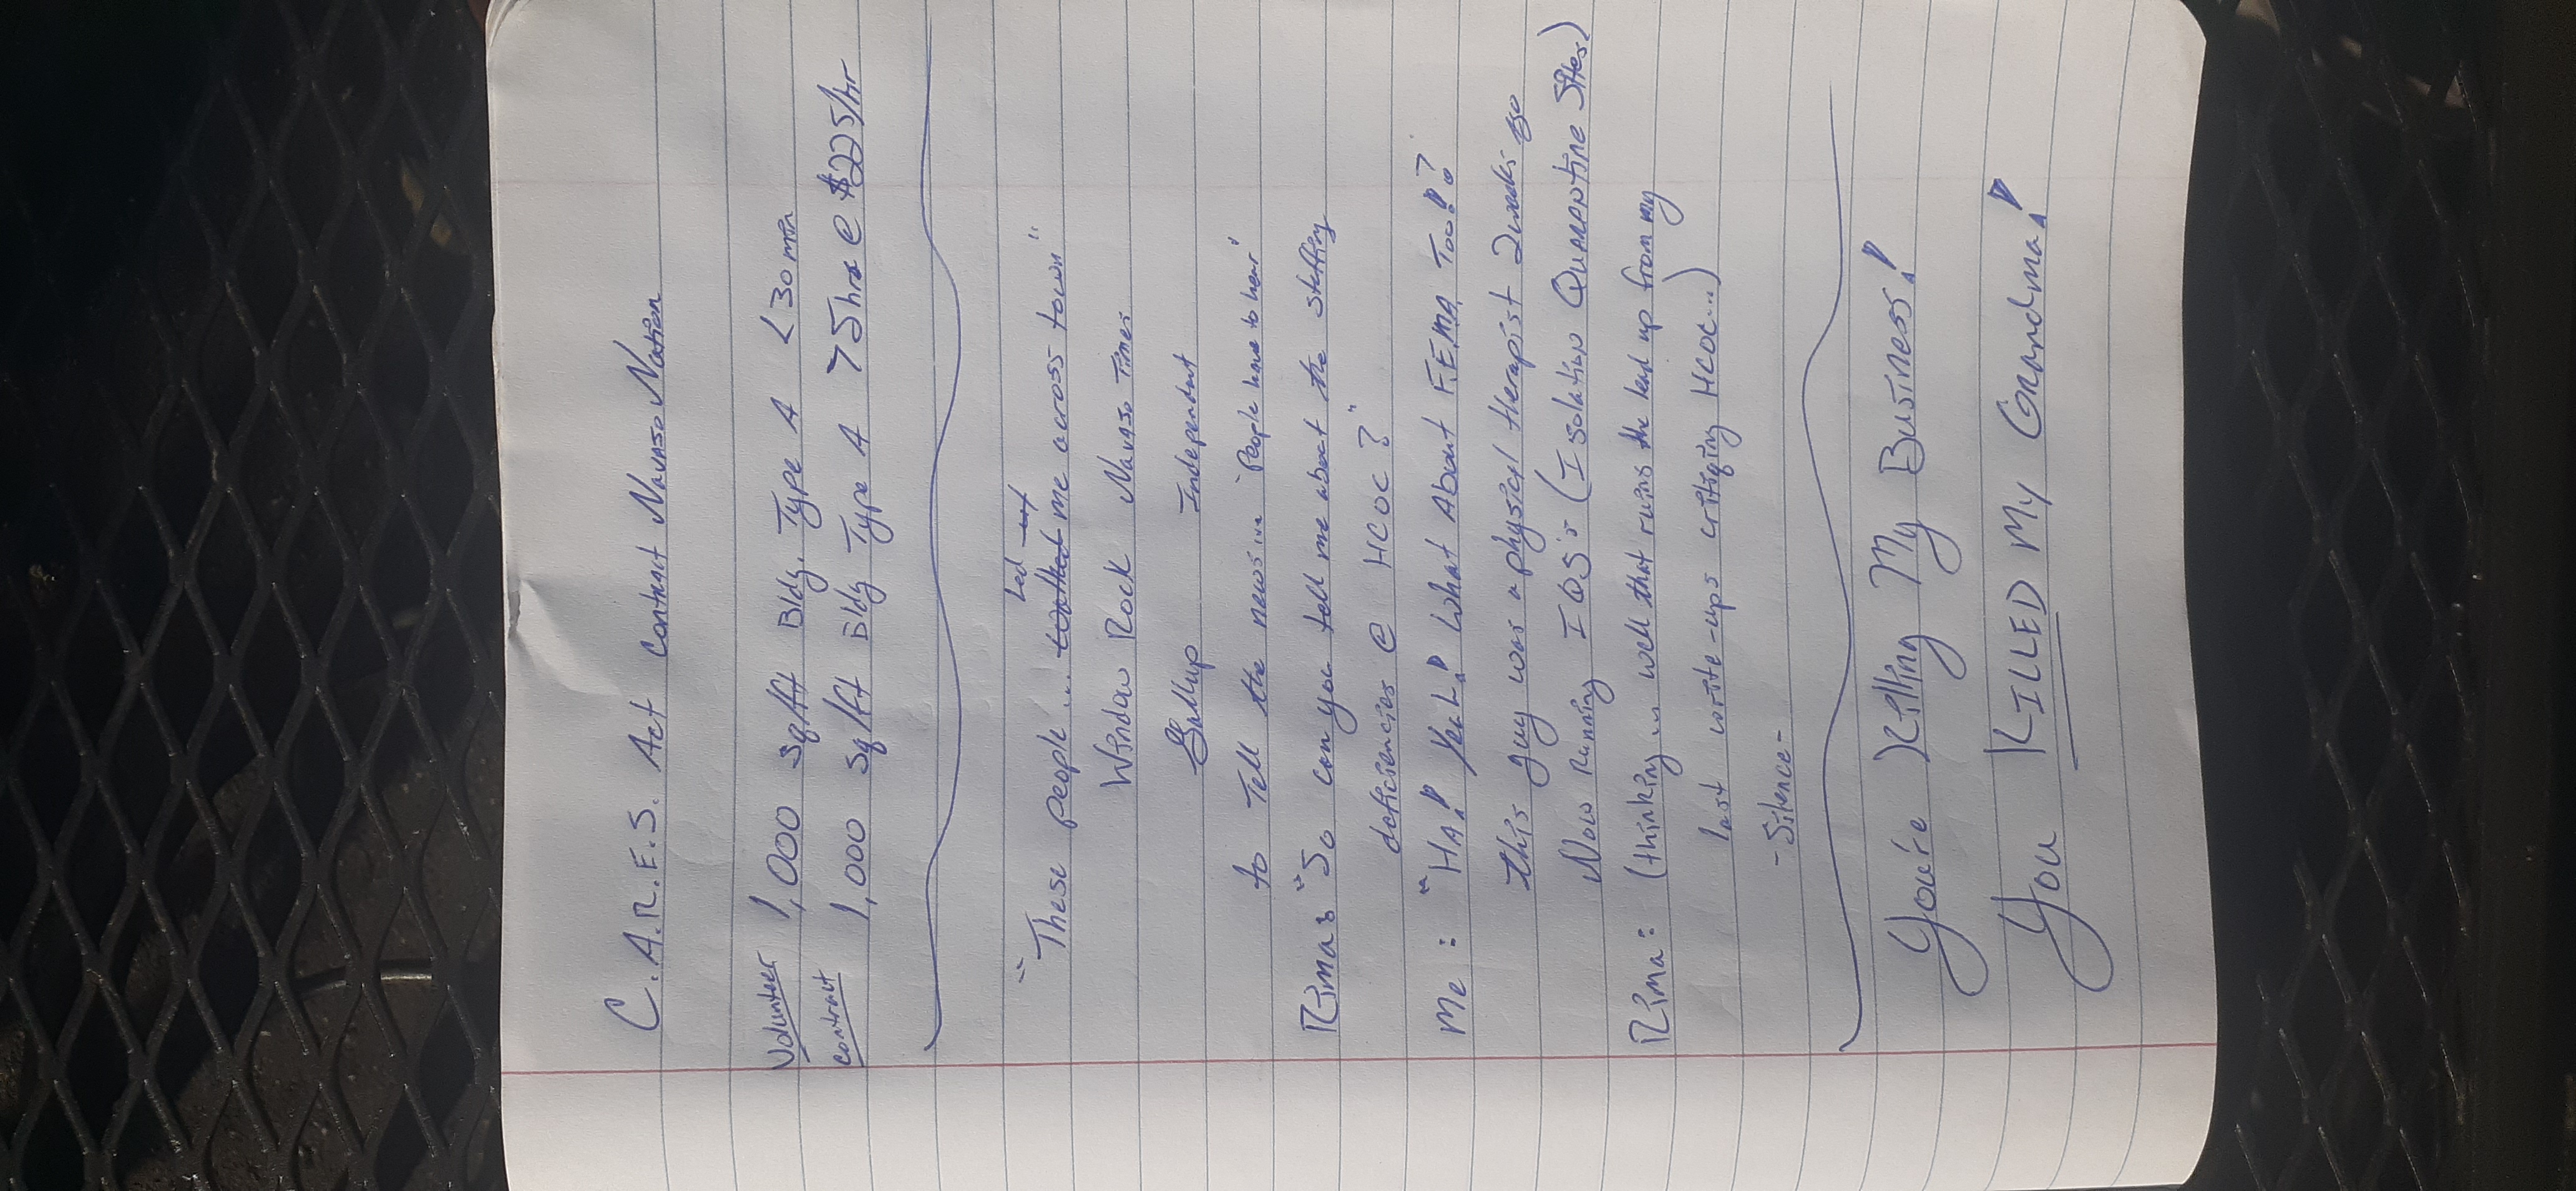 C.A.R.E.S. Act Contract Navajo Nation
Volunteer 1,000 sq/ft Bldg. Type A <30 min
contract 1,000 sq/ft Bldg Type A >5hrs @ $225/hr
Led w/
"These people ... walked me across town"
Window Rock Navajo Times
Gallup Independent
to Tell the news ... "People have to hear"
Rima: "So can you tell me about the staffing
deficiencies @ HCOC?"
Me: "HA! Yeah! What About F.E.M.A. Too!?
this guy was a physical therapist 2weeks ago
Now Running IQS's (Isolation Quarantine Sites)
Rima: (thinking ... well that ruins the lead up from my
last write-ups critiqing HCOC...)
-Silence-
You're Killing My Business!
You KILLED My Grandma!